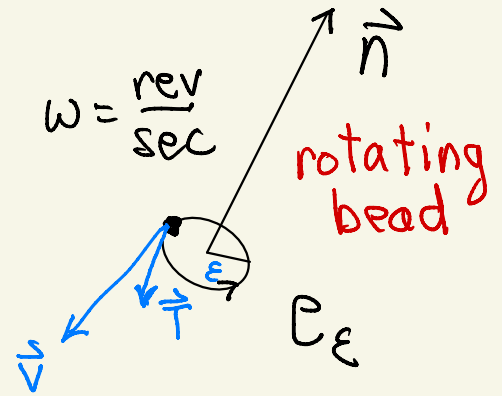 n⃗
ω = rev/sec
rotating
bead
ε
T⃗
C_ε
v⃗